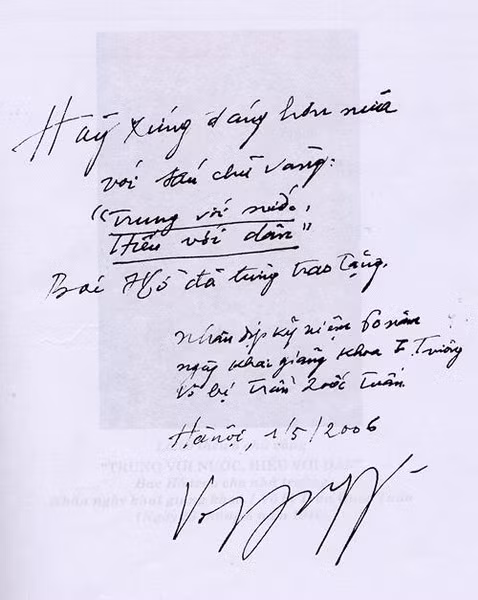 Hãy xứng đáng hơn nữa
với sáu chữ vàng:
"Trung với nước,
Hiếu với dân"
Bác Hồ đã từng trao tặng.
Nhân dịp kỷ niệm 60 năm
ngày khai giảng khóa I, Trường
Võ bị Trần Quốc Tuấn
Hà Nội, 1/5/2006
"TRUNG VỚI NƯỚC, HIẾU VỚI DÂN"